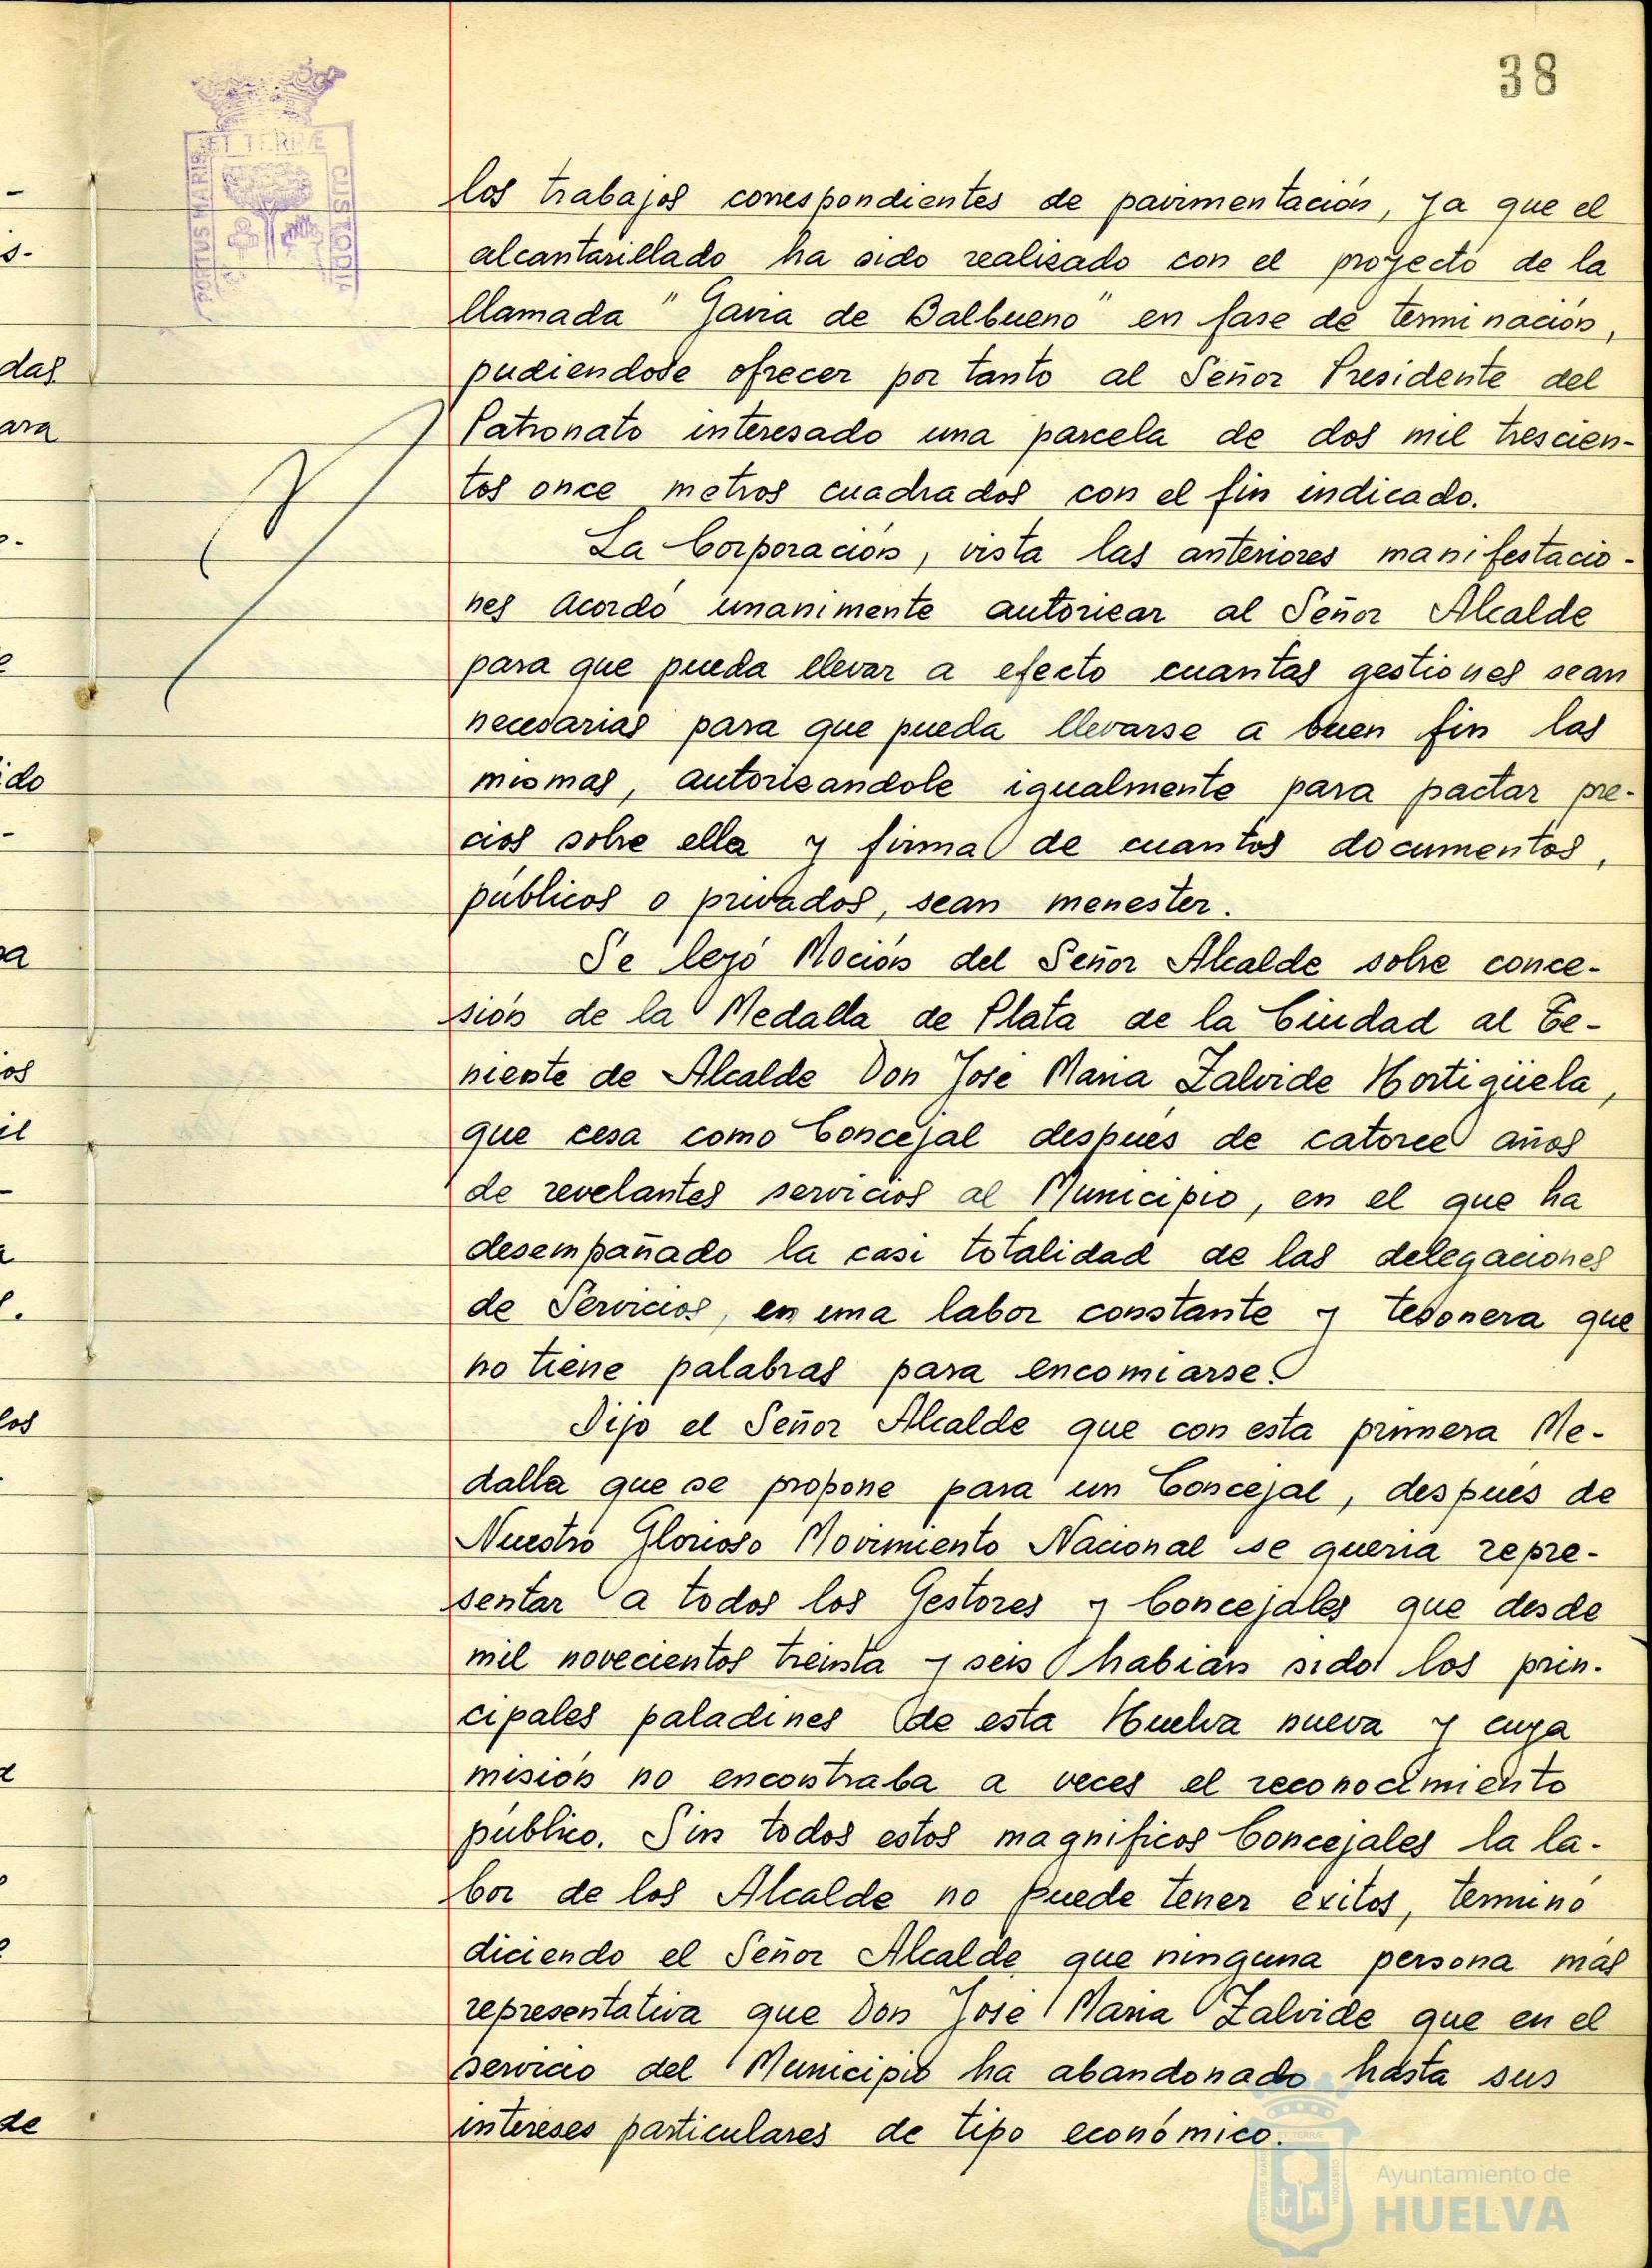 38
ET TERRÆ
PORTUS MARIS
CUSTODIA
los trabajos correspondientes de pavimentación, ya que el
alcantarillado ha sido realizado con el proyecto de la
llamada "Gavia de Balbueno" en fase de terminación,
pudiendose ofrecer por tanto al Señor Presidente del
Patronato interesado una parcela de dos mil trescien-
tos once metros cuadrados con el fin indicado.
La Corporación, vista las anteriores manifestacio-
nes acordó unanimente autorizar al Señor Alcalde
para que pueda llevar a efecto cuantas gestiones sean
necesarias para que pueda llevarse a buen fin las
mismas, autorizandole igualmente para pactar pre-
cios sobre ella y firma de cuantos documentos,
públicos o privados, sean menester.
Se leyó Moción del Señor Alcalde sobre conce-
sión de la Medalla de Plata de la Ciudad al Te-
niente de Alcalde Don José Maria Zalvide Hortigüela,
que cesa como Concejal despues de catorce años
de revelantes servicios al Municipio, en el que ha
desempañado la casi totalidad de las delegaciones
de Servicios, en una labor constante y tesonera que
no tiene palabras para encomiarse.
Dijo el Señor Alcalde que con esta primera Me-
dalla que se propone para un Concejal, despues de
Nuestro Glorioso Movimiento Nacional se queria repre-
sentar a todos los Gestores y Concejales que desde
mil novecientos treinta y seis habian sido los prin-
cipales paladines de esta Huelva nueva y cuya
misión no encontraba a veces el reconocimiento
público. Sin todos estos magnificos Concejales la la-
bor de los Alcalde no puede tener éxitos, terminó
diciendo el Señor Alcalde que ninguna persona más
representativa que Don José Maria Zalvide que en el
servicio del Municipio ha abandonado hasta sus
intereses particulares de tipo económico.
Ayuntamiento de
HUELVA
das
ara
do
os
il
los
de